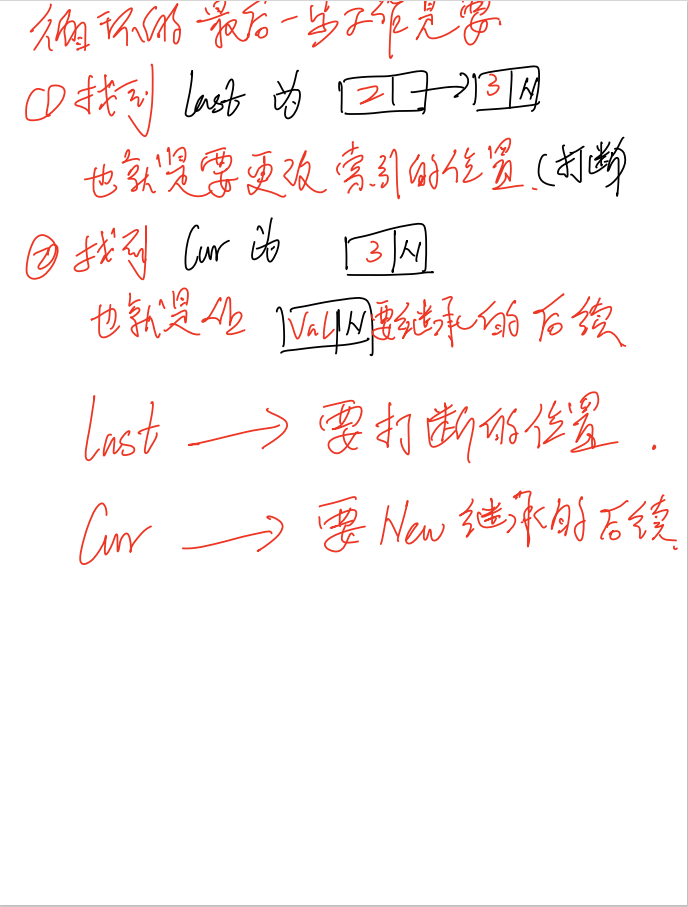 循环的最后一步工作是要
① 找到 last 为 2 → 3 N
也就是要更改索引的位置 (打断
② 找到 Cur 为 3 N
也就是 Val N 要继承的后续
last → 要打断的位置.
Cur → 要 New 继承的后续.